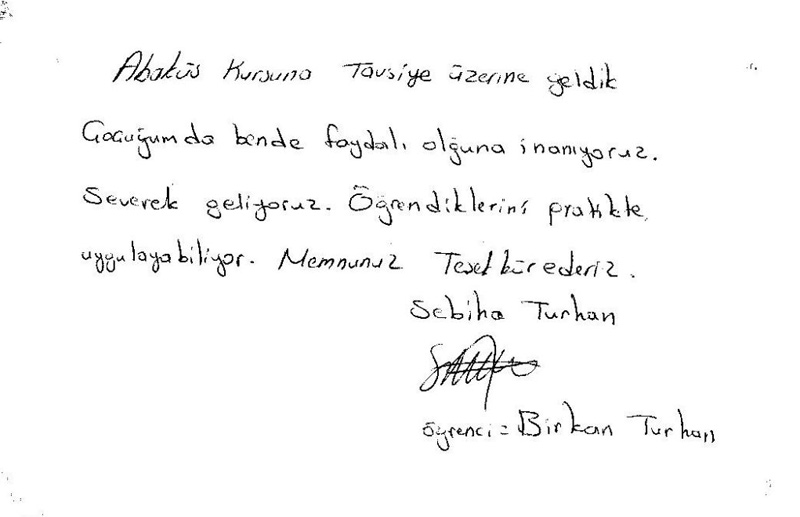 Abaküs Kursuna Tavsiye üzerine geldik
Çocuğumda bende faydalı olğuna inanıyoruz.
Severek geliyoruz. Öğrendiklerini pratikte,
uygulayabiliyor. Memnunuz Teşekkür ederiz.
Sebiha Turhan
öğrenci = Birkan Turhan